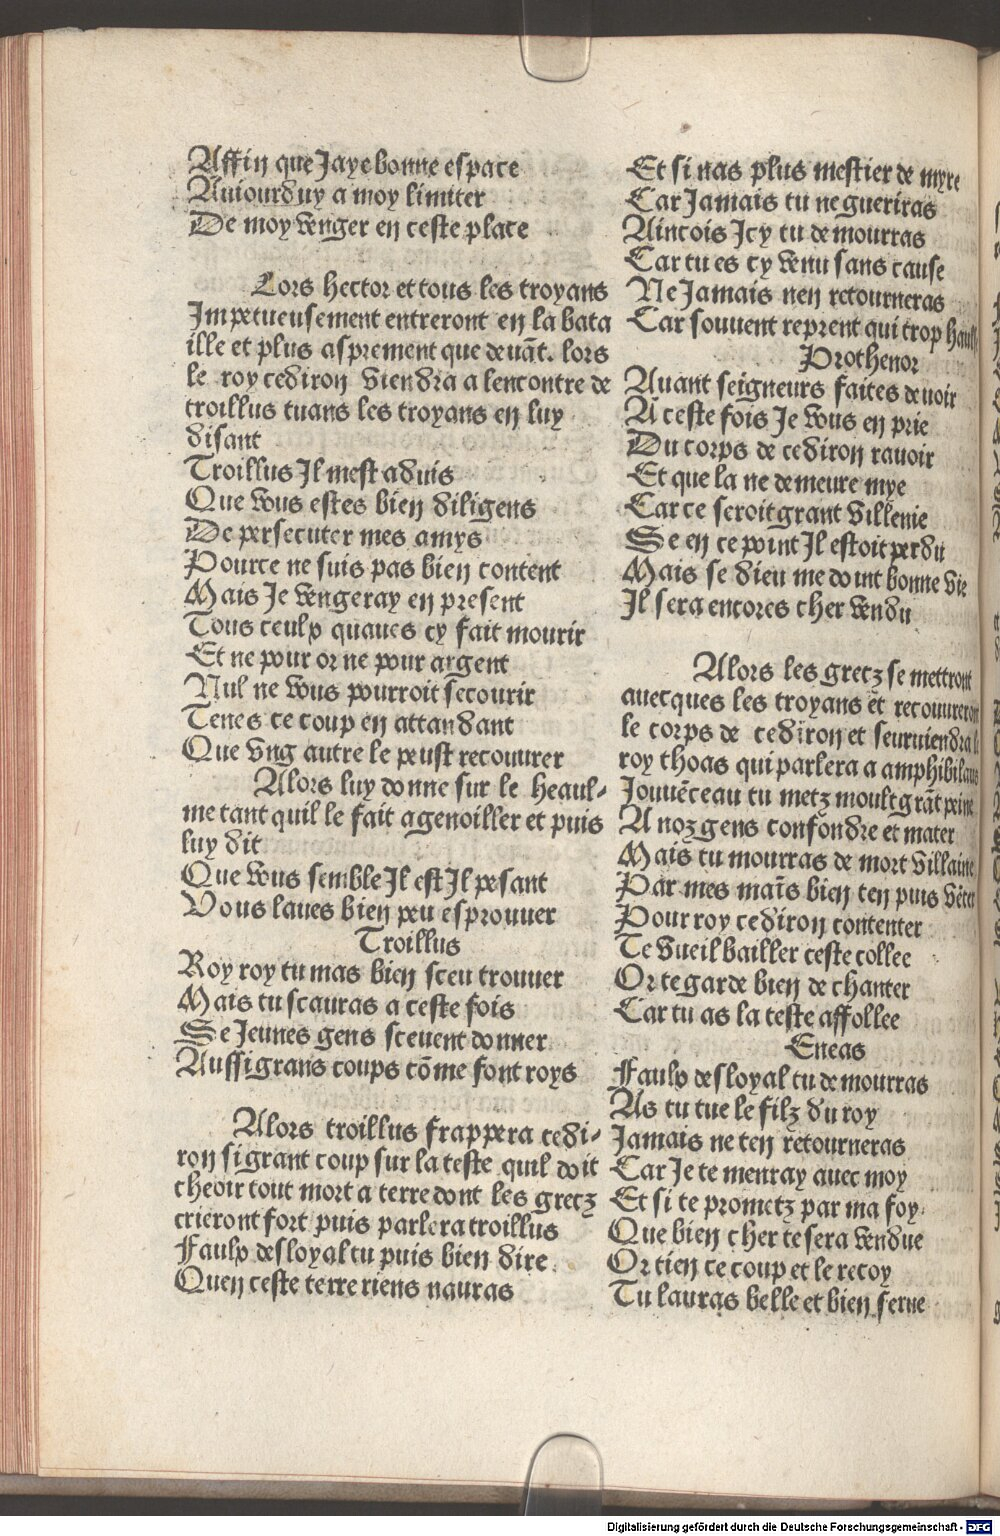 Affin que Jaye bonne espace
Auiourduy a moy limiter
De moy venger en ceste place
Lors hector et tous les troyans
Impetueusement entreront en la bata
ille et plus asprement que deuāt. lors
le roy cediron viendra a lencontre de
troillus tuans les troyans en luy
disant
Troillus Il mest aduis
Que vous estes bien diligens
De persecuter mes amys
Pource ne suis pas bien content
Mais Je vengeray en present
Tous ceulx quaues cy fait mourir
Et ne pour or ne pour argent
Nul ne vous pourroit secourir
Tenes ce coup en attandant
Que vng autre le peust recouurer
Alors luy donne sur le heaul-
me tant quil le fait agenoiller et puis
luy dit
Que vous semble Il est Il pesant
Vous laues bien peu esprouuer
Troillus
Roy roy tu mas bien sceu trouuer
Mais tu scauras a ceste fois
Se Jeunes gens sceuent donner
Aussi grans coups cōme font roys
Alors troillus frappera cedi-
ron si grant coup sur la teste quil doit
cheoir tout mort a terre dont les grecz
crieront fort puis parlera troillus
Faulx desloyal tu puis bien dire
Quen ceste terre riens nauras
Et si nas plus mestier de myre
Car Jamais tu ne gueriras
Aincois Icy tu demourras
Car tu es cy venu sans cause
Ne Jamais nen retourneras
Car souuent reprent qui trop
Prothenor
Auant seigneurs faites deuoir
A ceste fois Je vous en prie
Du corps de cediron rauoir
Et que la ne demeure mye
Car ce seroit grant villenie
Se en ce point Il estoit perdu
Mais se dieu me doint bonne vie
Il sera encores cher vendu
Alors les grecz se mettront
auecques les troyans et recouureront
le corps de cediron et seuruiendra
roy thoas qui parlera a amphibilaus
Jouuēceau tu metz moult grāt peine
A noz gens confondre et mater
Mais tu mourras de mort villaine
Par mes maīs bien ten puis vēter
Pour roy cediron contenter
Te vueil bailler ceste collee
Or te garde bien de chanter
Car tu as la teste affollee
Eneas
Faulx desloyal tu demourras
As tu tue le filz du roy
Jamais ne ten retourneras
Car Je te menray auec moy
Et si te prometz par ma foy
Que bien cher te sera vendue
Or tien ce coup et le recoy
Tu lauras belle et bien ferue
Digitalisierung gefördert durch die Deutsche Forschungsgemeinschaft - DFG